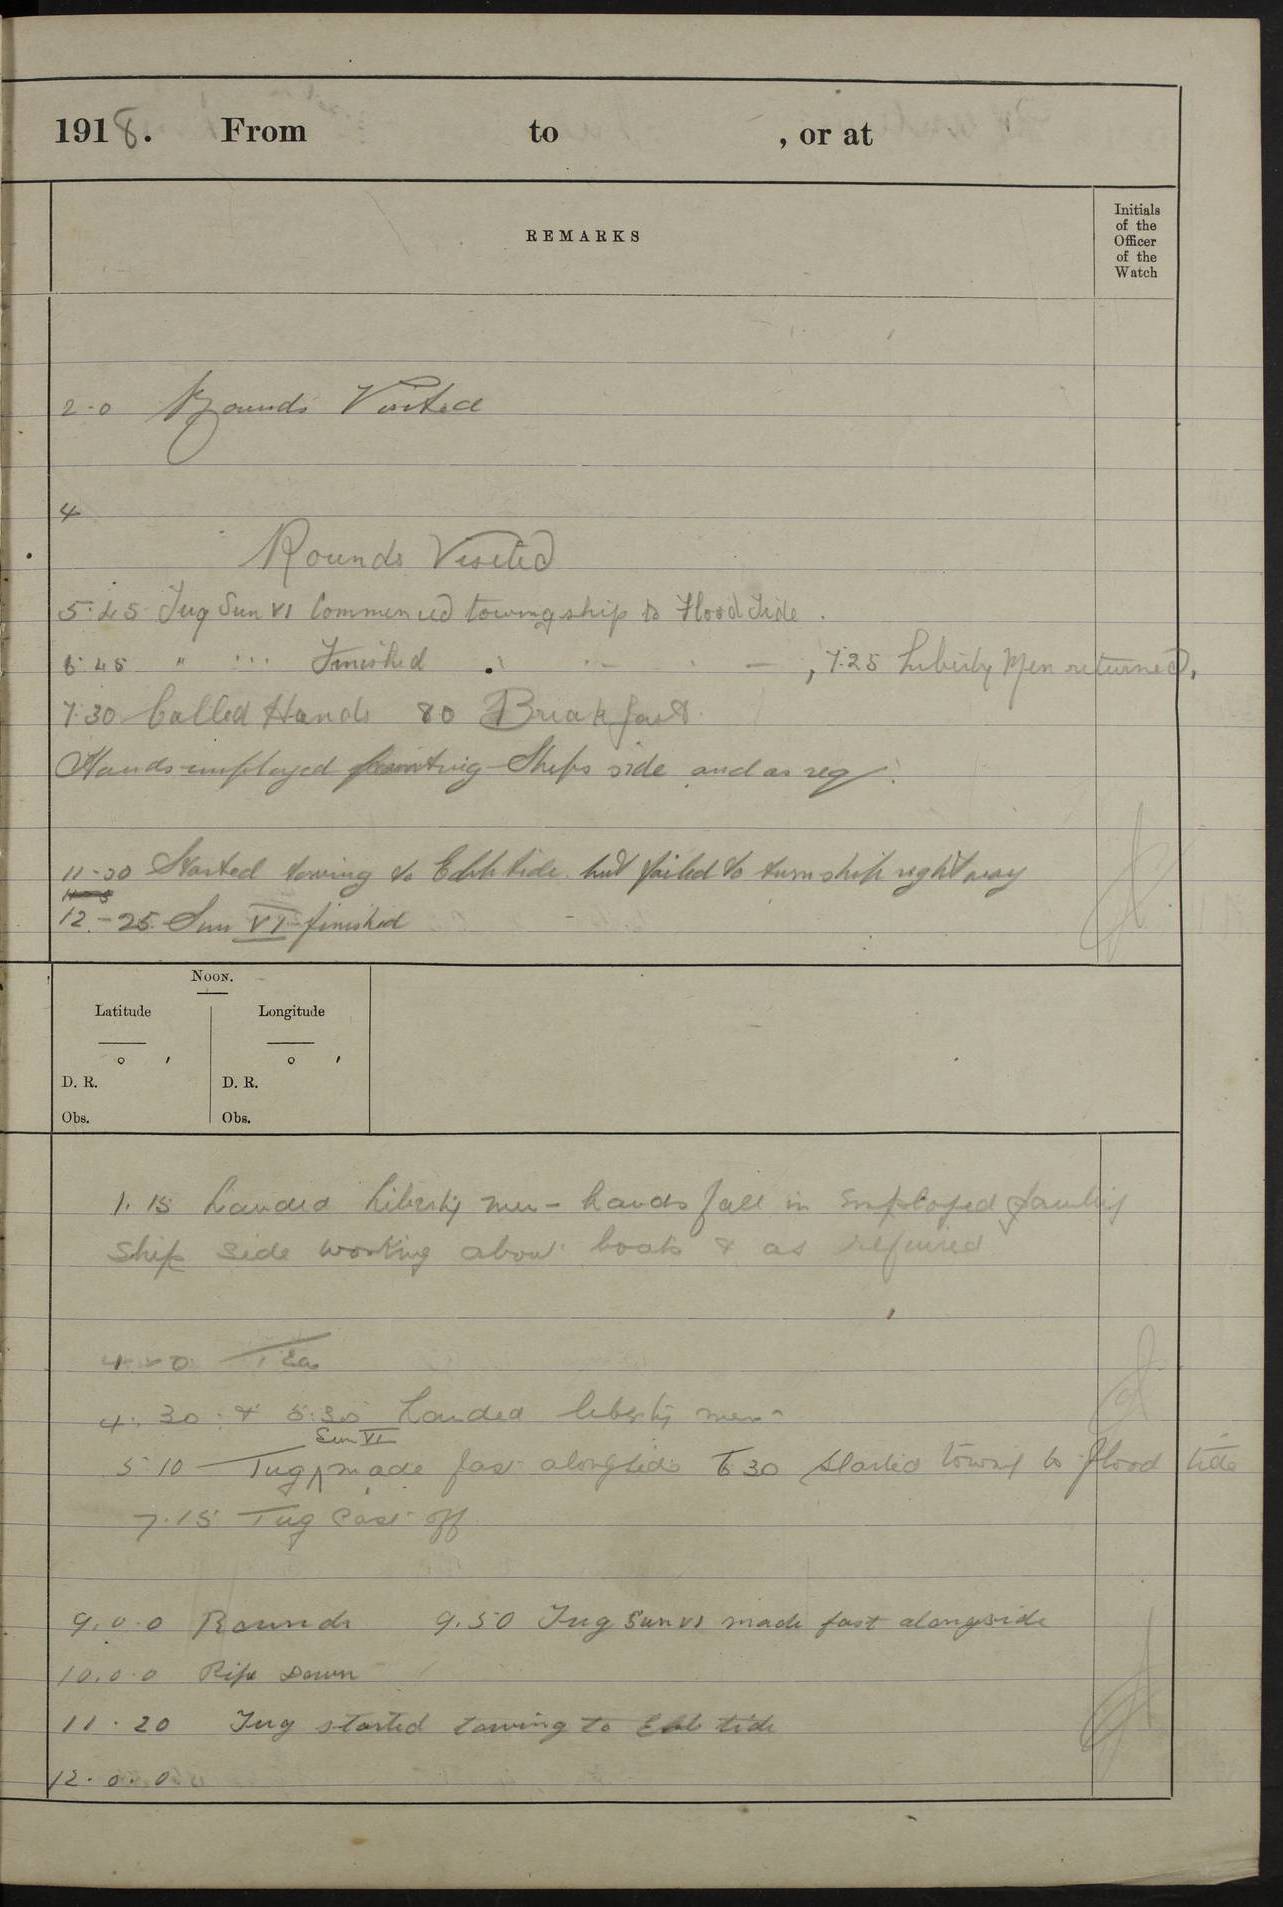 1918. From to , or at
REMARKS
Initials
of the
Officer
of the
Watch
2-0 Rounds Visited
4
Rounds Visited
5:45 Tug Sun VI Commenced towing ship to Flood Tide.
6:45 " " Finished " , 7.25 Liberty Men returned.
7.30 Called Hands 80 Breakfast.
Hands employed painting Ships side and as req
11-30 Started towing to Ebb tide but failed to turn ship right way
12-25 Sun VI finished
NOON.
Latitude Longitude
° ′ ° ′
D. R. D. R.
Obs. Obs.
1.15 Landed liberty men - hands fall in employed painting
Ship side working about boats & as required
4.0 Tea
4.30 & 5.30 Landed liberty men
Sun VI
5.10 Tug ^ made fast alongside 6.30 started towing to flood tide
7.15 Tug Cast off
9.0.0 Rounds 9.50 Tug Sun VI made fast alongside
10.0.0 Pipe Down
11.20 Tug started towing to Ebb tide
12.0.0